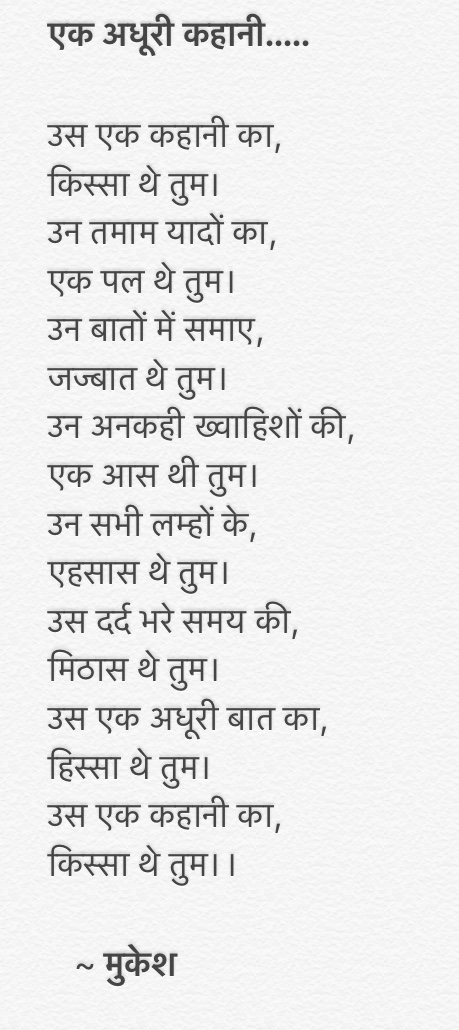 एक अधूरी कहानी.....
उस एक कहानी का,
किस्सा थे तुम।
उन तमाम यादों का,
एक पल थे तुम।
उन बातों में समाए,
जज्बात थे तुम।
उन अनकही ख्वाहिशों की,
एक आस थी तुम।
उन सभी लम्हों के,
एहसास थे तुम।
उस दर्द भरे समय की,
मिठास थे तुम।
उस एक अधूरी बात का,
हिस्सा थे तुम।
उस एक कहानी का,
किस्सा थे तुम।।
~ मुकेश